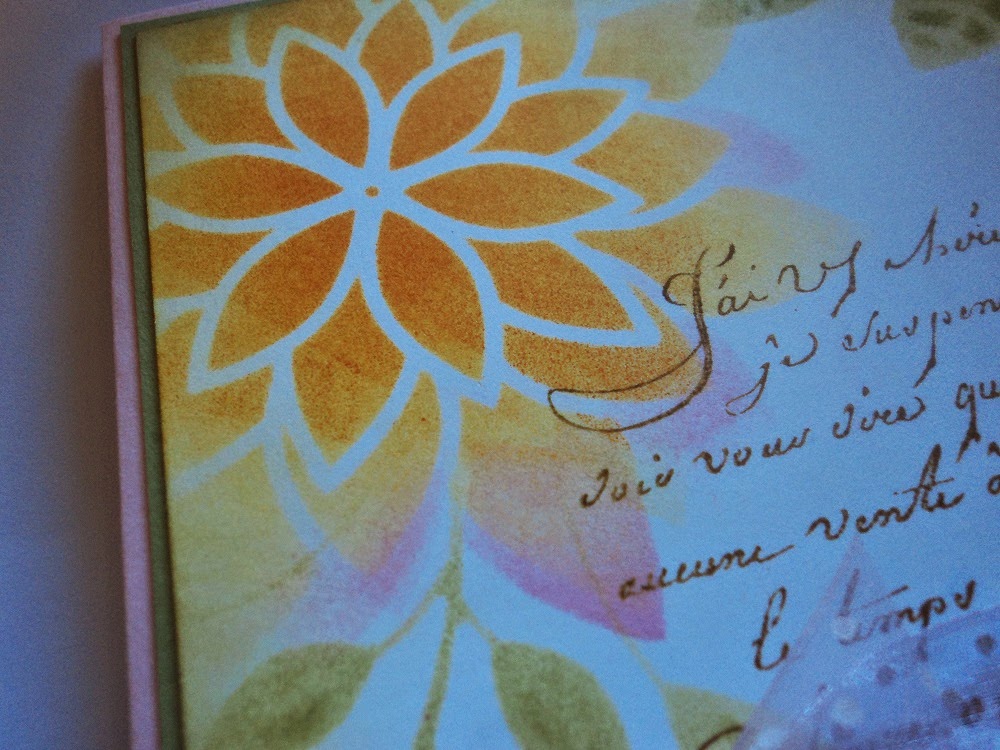 J'ai vs
je suspen
dois vous dire qu
aucune vente
le temps